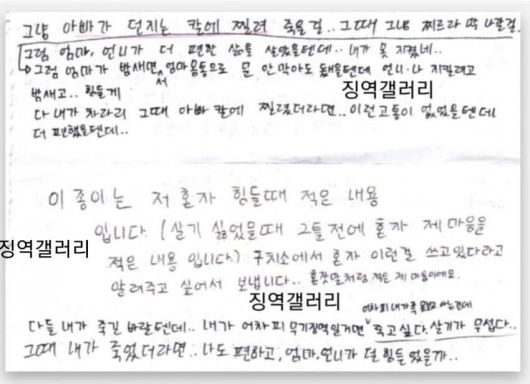 그냥 아빠가 던지는 칼에 찔려 죽을걸.. 그때 그냥 찌르라 나갈걸.
그럼 엄마, 언니가 더 편한 삶을 살았을텐데.. 내가 못 지켰네..
그럼 엄마가 밤새면서 엄마몸통으로 문 안막아도 됐을텐데 언니·나 지킬려고
밤새고.. 힘들게
징역갤러리
다 내가 차라리 그때 아빠 칼에 찔렸더라면.. 이런고통이 없었을텐데
더 편했을텐데..
이 종이는 저 혼자 힘들때 적은 내용
입니다. (살기 싫었을때 그틀전에 혼자 제 마음을
징역갤러리
적은 내용 입니다.) 구치소에서 혼자 이런걸 쓰고있다라고
알려주고 싶어서 보냅니다.. 혼잣말처럼 적은 제 마음이에요.
징역갤러리
어차피 내가
다들 내가 죽길 바랄텐데.. 내가 어차피 무기징역일거면 죽고싶다. 살기가 무섭다..
그때 내가 죽었더라면.. 나도 편하고, 엄마,언니가 덜 힘들었을까..